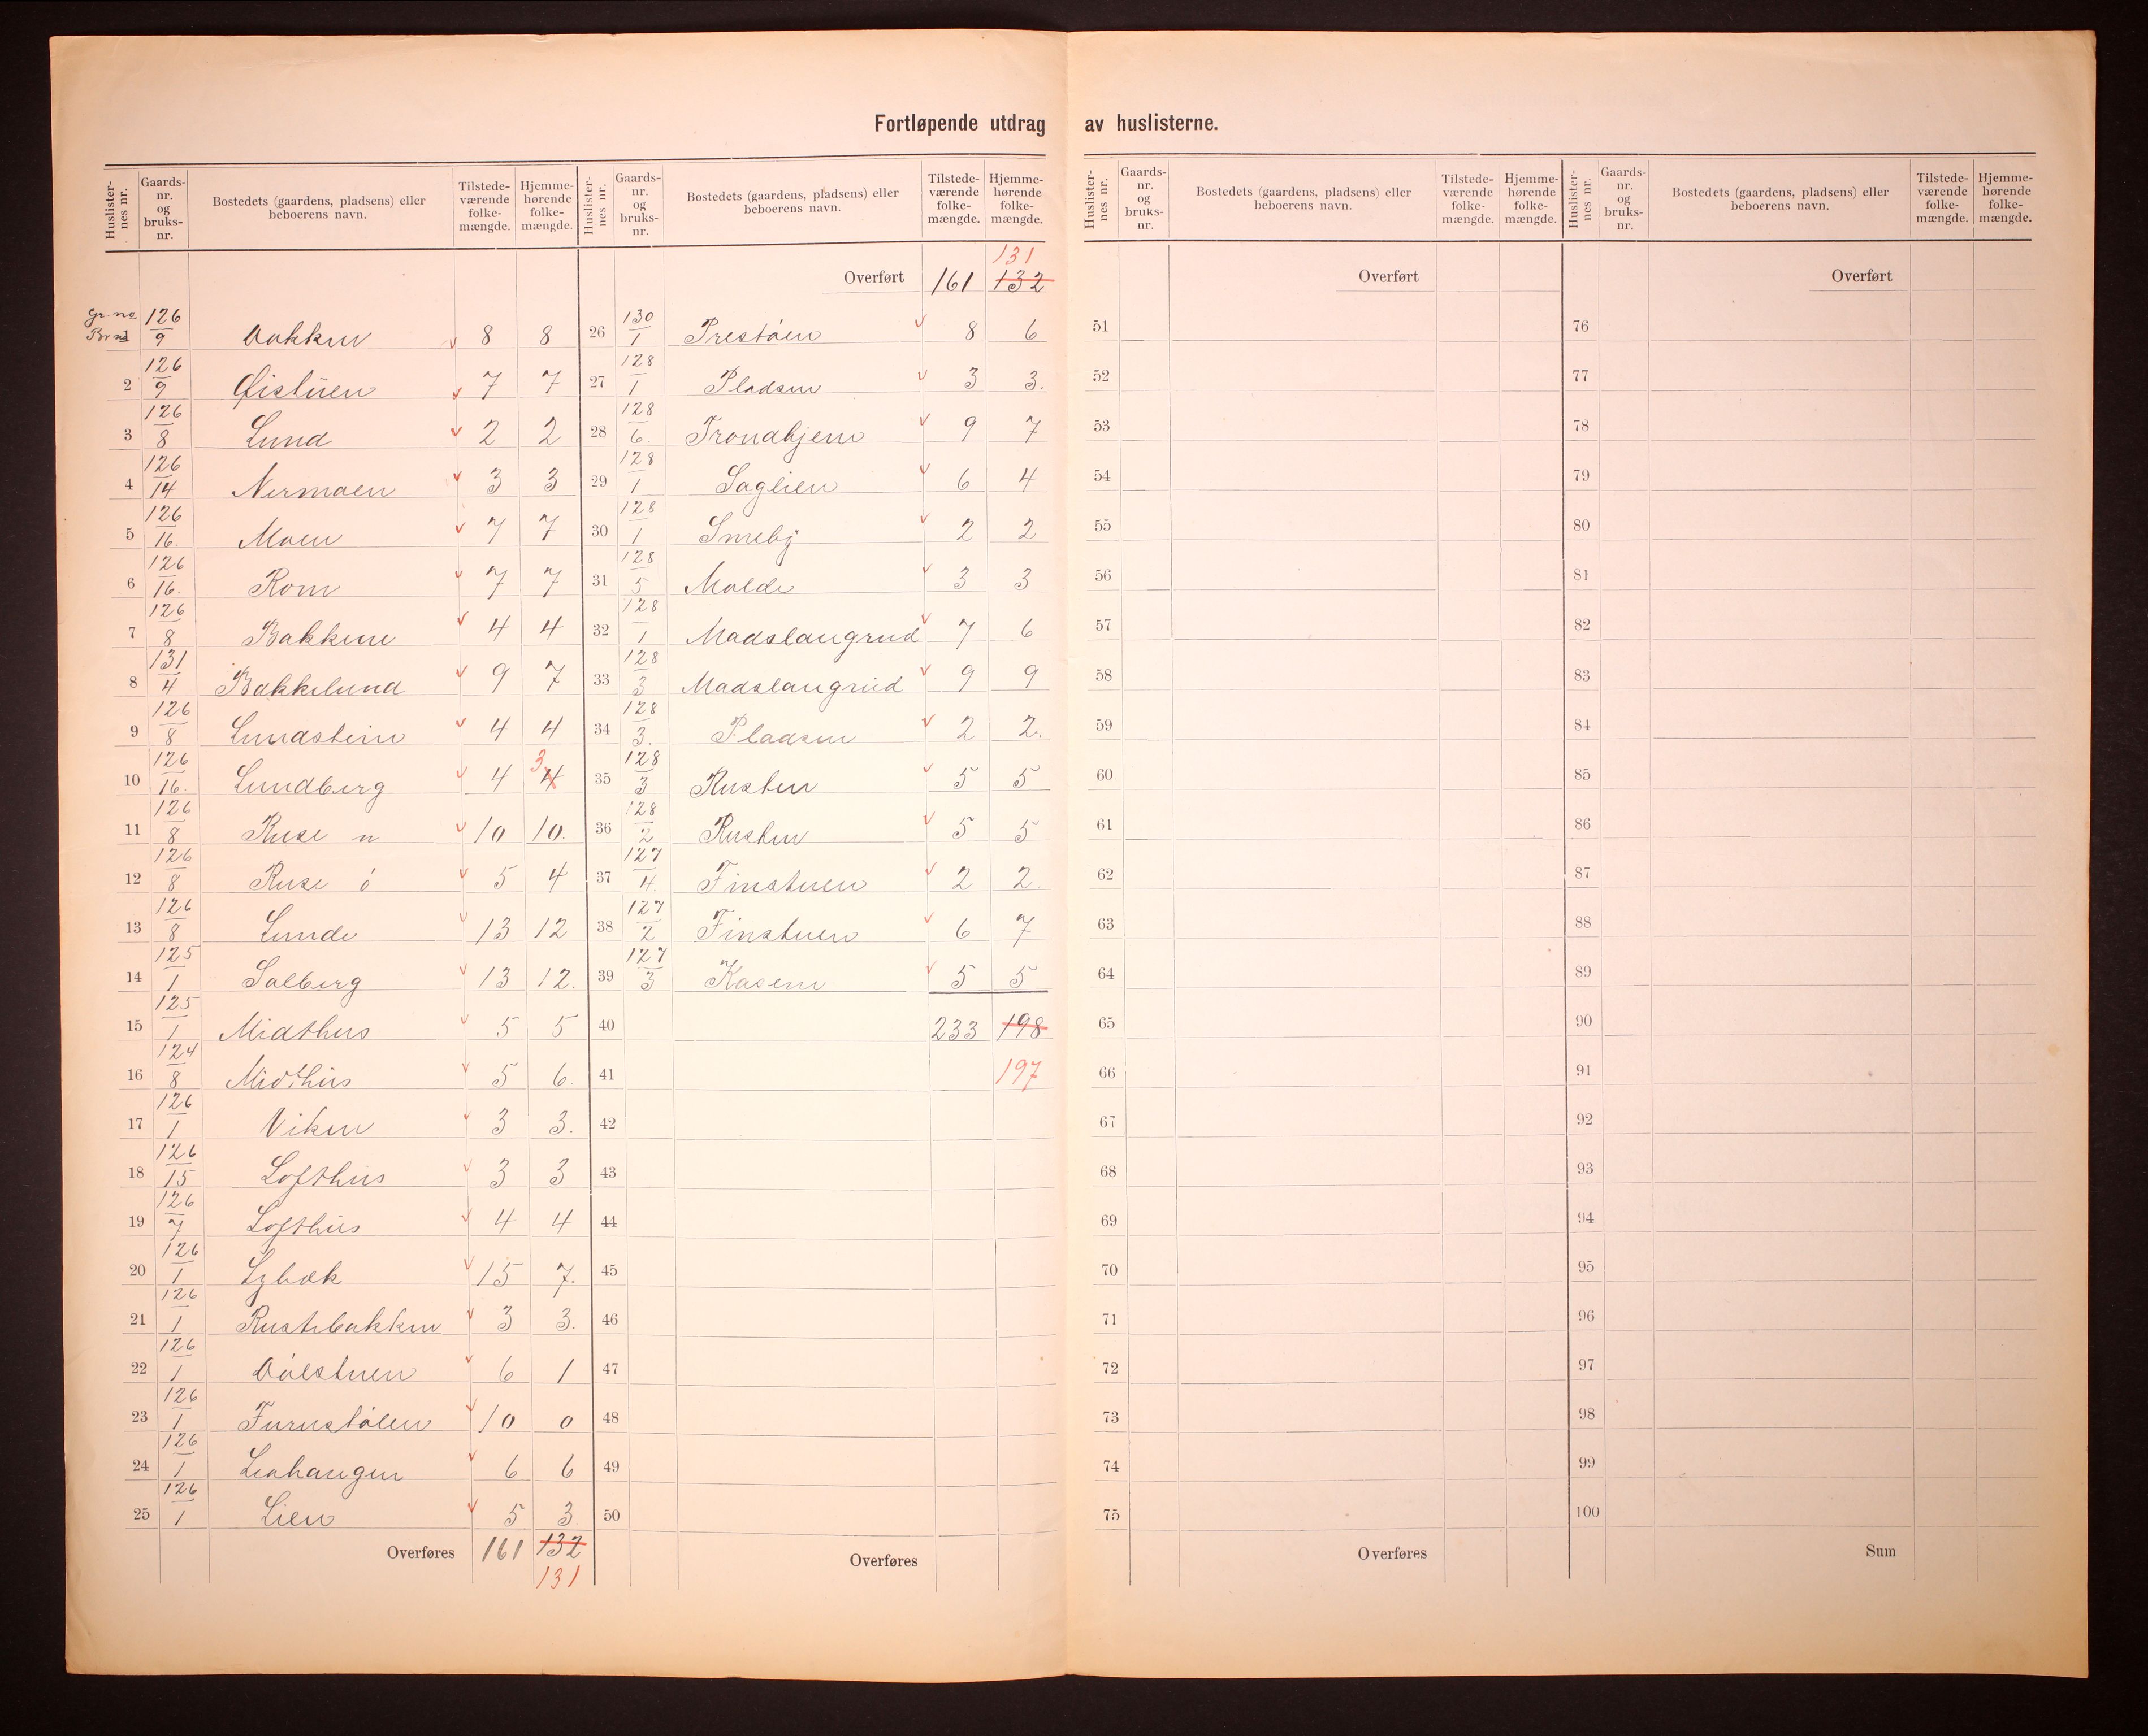 Fortløpende utdrag av huslisterne.
Huslister-nes nr. Gaards-nr. og bruks-nr. Bostedets (gaardens, pladsens) eller beboerens navn. Tilstede-værende folke-mængde. Hjemme-hørende folke-mængde.
Gr. no 126
Br no 1 9 Bakken 8 8
2 126/9 Øistuen 7 7
3 126/8 Lund 2 2
4 126/14 Nermoen 3 3
5 126/16. Moen 7 7
6 126/16. Rom 7 7
7 126/8 Bakkene 4 4
8 131/4 Bakkelund 9 7
9 126/8 Lundstein 4 4
10 126/16. Lundberg 4 4 3
11 126/8 Ruse n 10 10.
12 126/8 Ruse ó 5 4
13 126/8 Lunde 13 12
14 125/1 Solberg 13 12.
15 125/1 Midthus 5 5
16 124/8 Midthus 5 6.
17 126/1 Viken 3 3.
18 126/15 Lofthus 3 3
19 126/7 Lofthus 4 4
20 126/1 Lybæk 15 7.
21 126/1 Rustebakken 3 3.
22 126/1 6 1
23 126/1 10 0
24 126/1 6 6
25 126/1 Lien 5 3.
Overføres 161 132
131
Huslister-nes nr. Gaards-nr. og bruks-nr. Bostedets (gaardens, pladsens) eller beboerens navn. Tilstede-værende folke-mængde. Hjemme-hørende folke-mængde.
131
Overført 161 132
26 130/1 Prestóen 8 6
27 128/1 Pladsen 3 3.
28 128/6. Trondhjem 9 7
29 128/1 Saglien 6 4
30 128/1 Smeby 2 2
31 128/5 Molde 3 3
32 128/1 Madslangrud 7 6
33 128/3 Madslangrud 9 9
34 128/3. Pladsen 2 2.
35 128/3 Rusten 5 5
36 128/2 Rusten 5 5
37 127/4. Finstuen 2 2.
38 127/2 Finstuen 6 7
39 127/3 Kasen 5 5
40 233 198
41 197
42
43
44
45
46
47
48
49
50
Overføres
Huslister-nes nr. Gaards-nr. og bruks-nr. Bostedets (gaardens, pladsens) eller beboerens navn. Tilstede-værende folke-mængde. Hjemme-hørende folke-mængde.
Overført
51
52
53
54
55
56
57
58
59
60
61
62
63
64
65
66
67
68
69
70
71
72
73
74
75
Overføres
Huslister-nes nr. Gaards-nr. og bruks-nr. Bostedets (gaardens, pladsens) eller beboerens navn. Tilstede-værende folke-mængde. Hjemme-hørende folke-mængde.
Overført
76
77
78
79
80
81
82
83
84
85
86
87
88
89
90
91
92
93
94
95
96
97
98
99
100
Sum